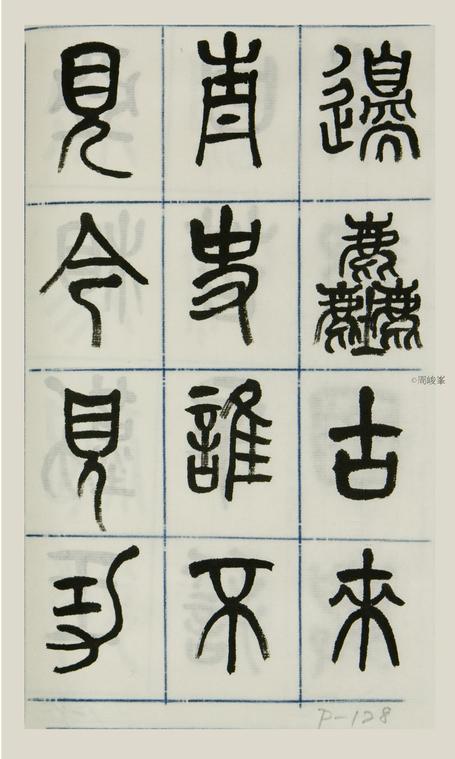 邊塵古來
青史誰不
見今見功
©周峻峯
P-128